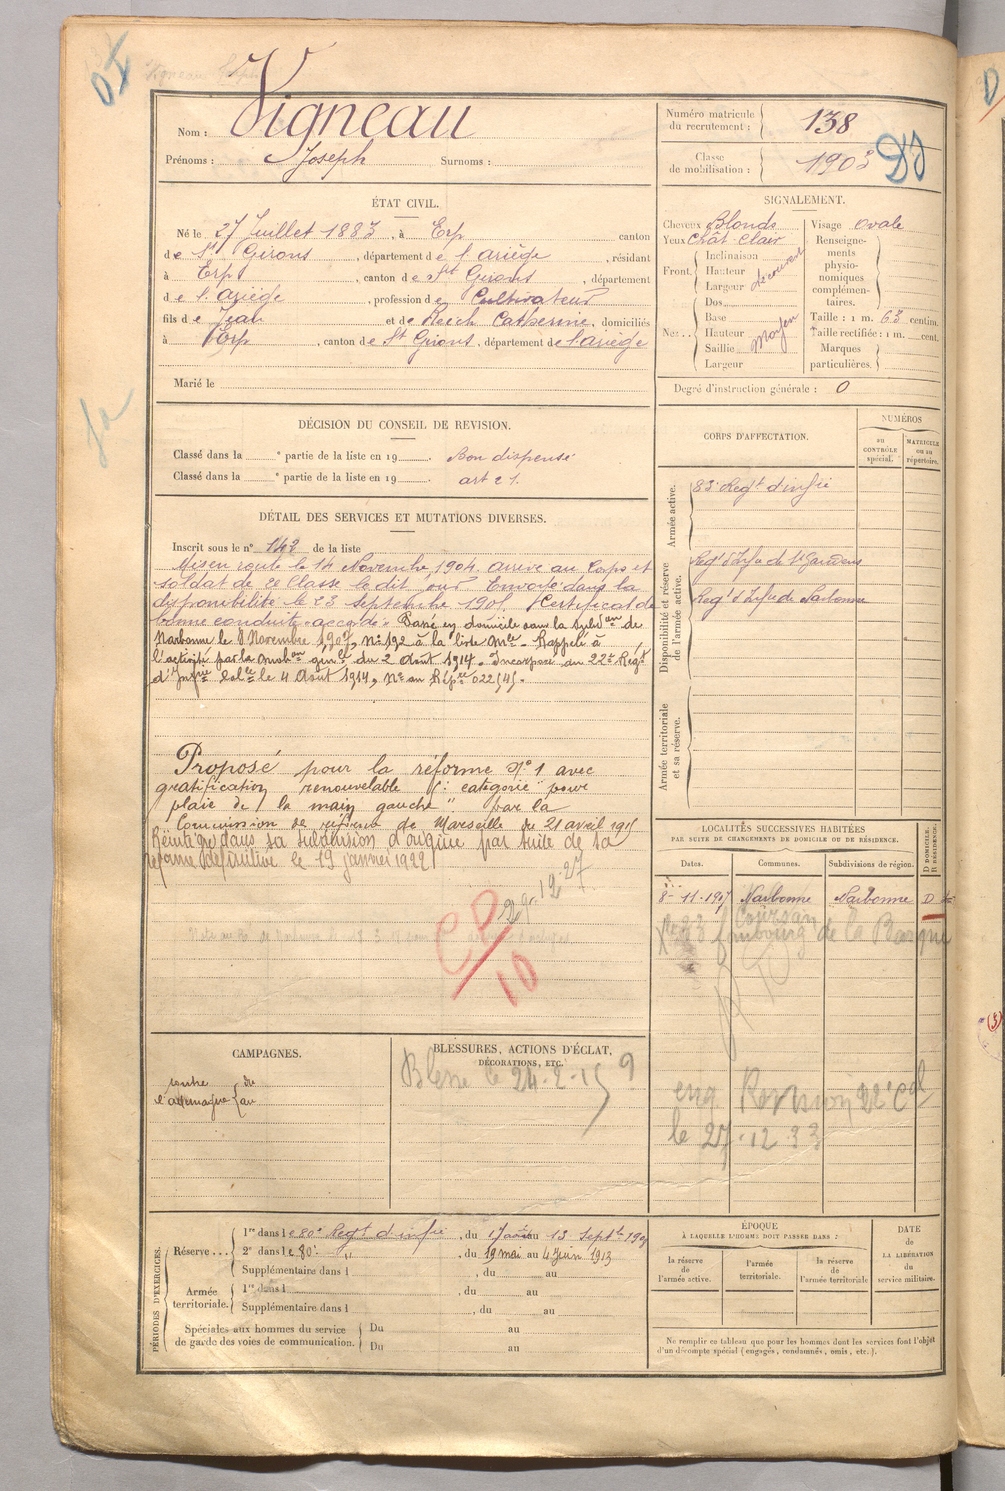 Nom : Vigneau
Prénoms : Joseph Surnoms :
Numéro matricule du recrutement : 138
Classe de mobilisation : 1903
ÉTAT CIVIL.
Né le 27 Juillet 1883, à Erp canton
de St Girons, département de l'ariège, résidant
à Erp, canton de St Girons, département
de l'ariège, profession de Cultivateur
fils de Jean et de Reich Catherine, domiciliés
à Erp, canton de St Girons, département de l'ariège
Marié le
SIGNALEMENT.
Cheveux Blonds
Yeux Chât Clair
Front Inclinaison
Hauteur
Largeur découvert
Nez Dos
Base
Hauteur
Saillie Moyen
Largeur
Visage ovale
Renseignements physionomiques complémentaires.
Taille : 1 m. 63 centim.
Taille rectifiée : 1 m. cent.
Marques particulières.
Degré d'instruction générale : 0
DÉCISION DU CONSEIL DE REVISION.
Classé dans la e partie de la liste en 19 . Bon dispensé
Classé dans la e partie de la liste en 19 . art 21.
DÉTAIL DES SERVICES ET MUTATIONS DIVERSES.
Inscrit sous le n° 142 de la liste
Mis en route le 14 Novembre 1904. arrivé au Corps et
soldat de 2e Classe le dit jour Envoyé dans la
disponibilité le 23 septembre 190 . Certificat de
bonne conduite "accordé" Passé en domicile dans la subdon de
Narbonne le 8 Novembre 1907, N° 192 à la liste Mle - Rappelé à
l'activité par la mobon genle du 2 Août 1914. Incorporé au 22e Régt
d'Infrie Colle le 4 Août 1914, N° au Répre 022
Proposé pour la réforme N° 1 avec
gratification renouvelable catégorie pour
"plaie de la main gauche" par la
Commission de réforme de Marseille du 21 avril 191
Réintégré dans sa subdivision d'origine par suite de sa
réforme définitive le 19 janvier 1922
29-12-27
CP/10
CORPS D'AFFECTATION.
NUMÉROS
au CONTRÔLE spécial.
MATRICULE ou au répertoire.
Armée active.
83e Regt d'infie
Disponibilité et réserve de l'armée active.
Regt d'Infie de St Gaudens
Regt d'Infie de Narbonne
Armée territoriale et sa réserve.
LOCALITÉS SUCCESSIVES HABITÉES
PAR SUITE DE CHANGEMENTS DE DOMICILE OU DE RÉSIDENCE.
Dates. Communes. Subdivisions de région. D DOMICILE. R RÉSIDENCE.
8-11-1907 Narbonne Narbonne D
Coursan
faubourg de la
CAMPAGNES.
contre l'allemagne du
au
BLESSURES, ACTIONS D'ÉCLAT,
DÉCORATIONS, ETC.
Blessé le 24-2-15
22e Cal
le 27-12 33
PÉRIODES D'EXERCICES.
Réserve 1re dans le 80e Regt d'infie, du 17 août au 13 Septbre 190
2e dans le 80e ", du 19 mai au 4 Juin 1913
Supplémentaire dans l , du au
Armée territoriale. 1re dans l , du au
Supplémentaire dans l , du au
Spéciales aux hommes du service de garde des voies de communication. Du au
Du au
ÉPOQUE
À LAQUELLE L'HOMME DOIT PASSER DANS :
la réserve de l'armée active.
l'armée territoriale.
la réserve de l'armée territoriale
DATE de LA LIBÉRATION du service militaire.
Ne remplir ce tableau que pour les hommes dont les services font l'objet
d'un décompte spécial (engagés, condamnés, omis, etc.).